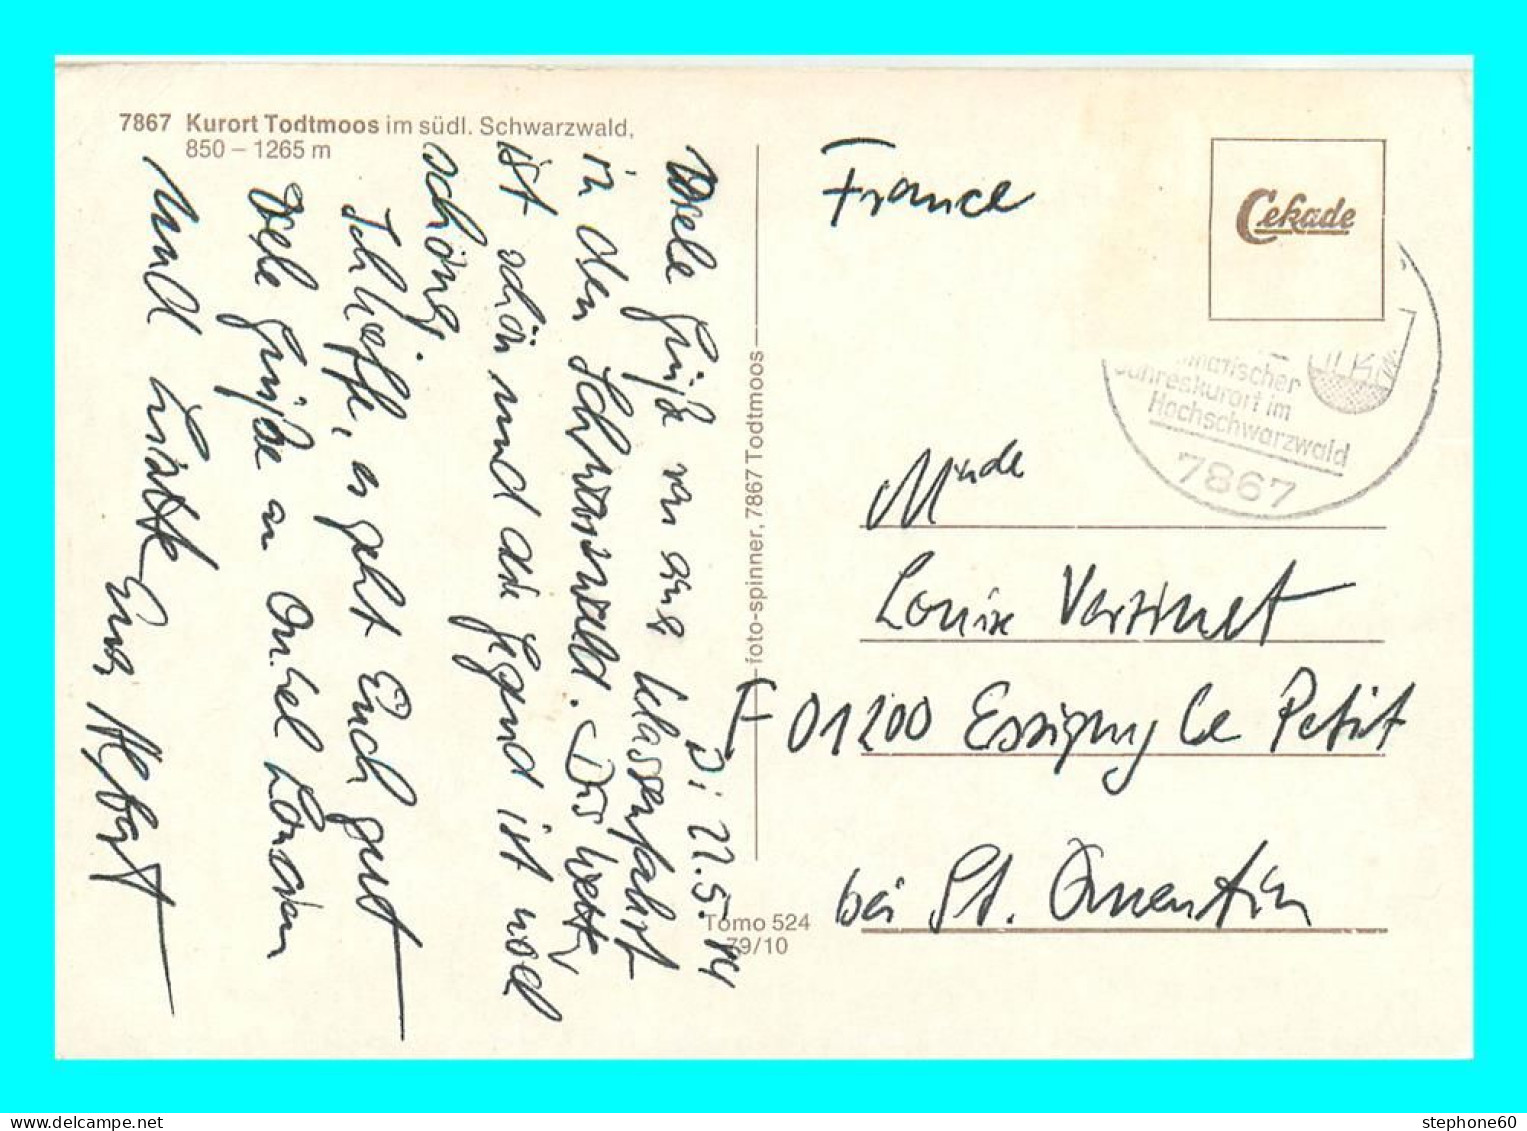 7867 Kurort Todtmoos im südl. Schwarzwald,
850 – 1265 m
Viele Grüße von aus Klassenfahrt
in den Schwarzwald. Das Wetter
ist schön und die Gegend ist noch
schöner.
Ich hoffe, es geht Euch gut
Viele Grüße an Onkel
und
Euer
Di 22.5.
foto-spinner, 7867 Todtmoos
Tomo 524
79/10
France
Cekade
Jahreskurort im
Hochschwarzwald
7867
Made
Louise
F 01200 Essigny Le Petit
bei St. Quentin
stephone60